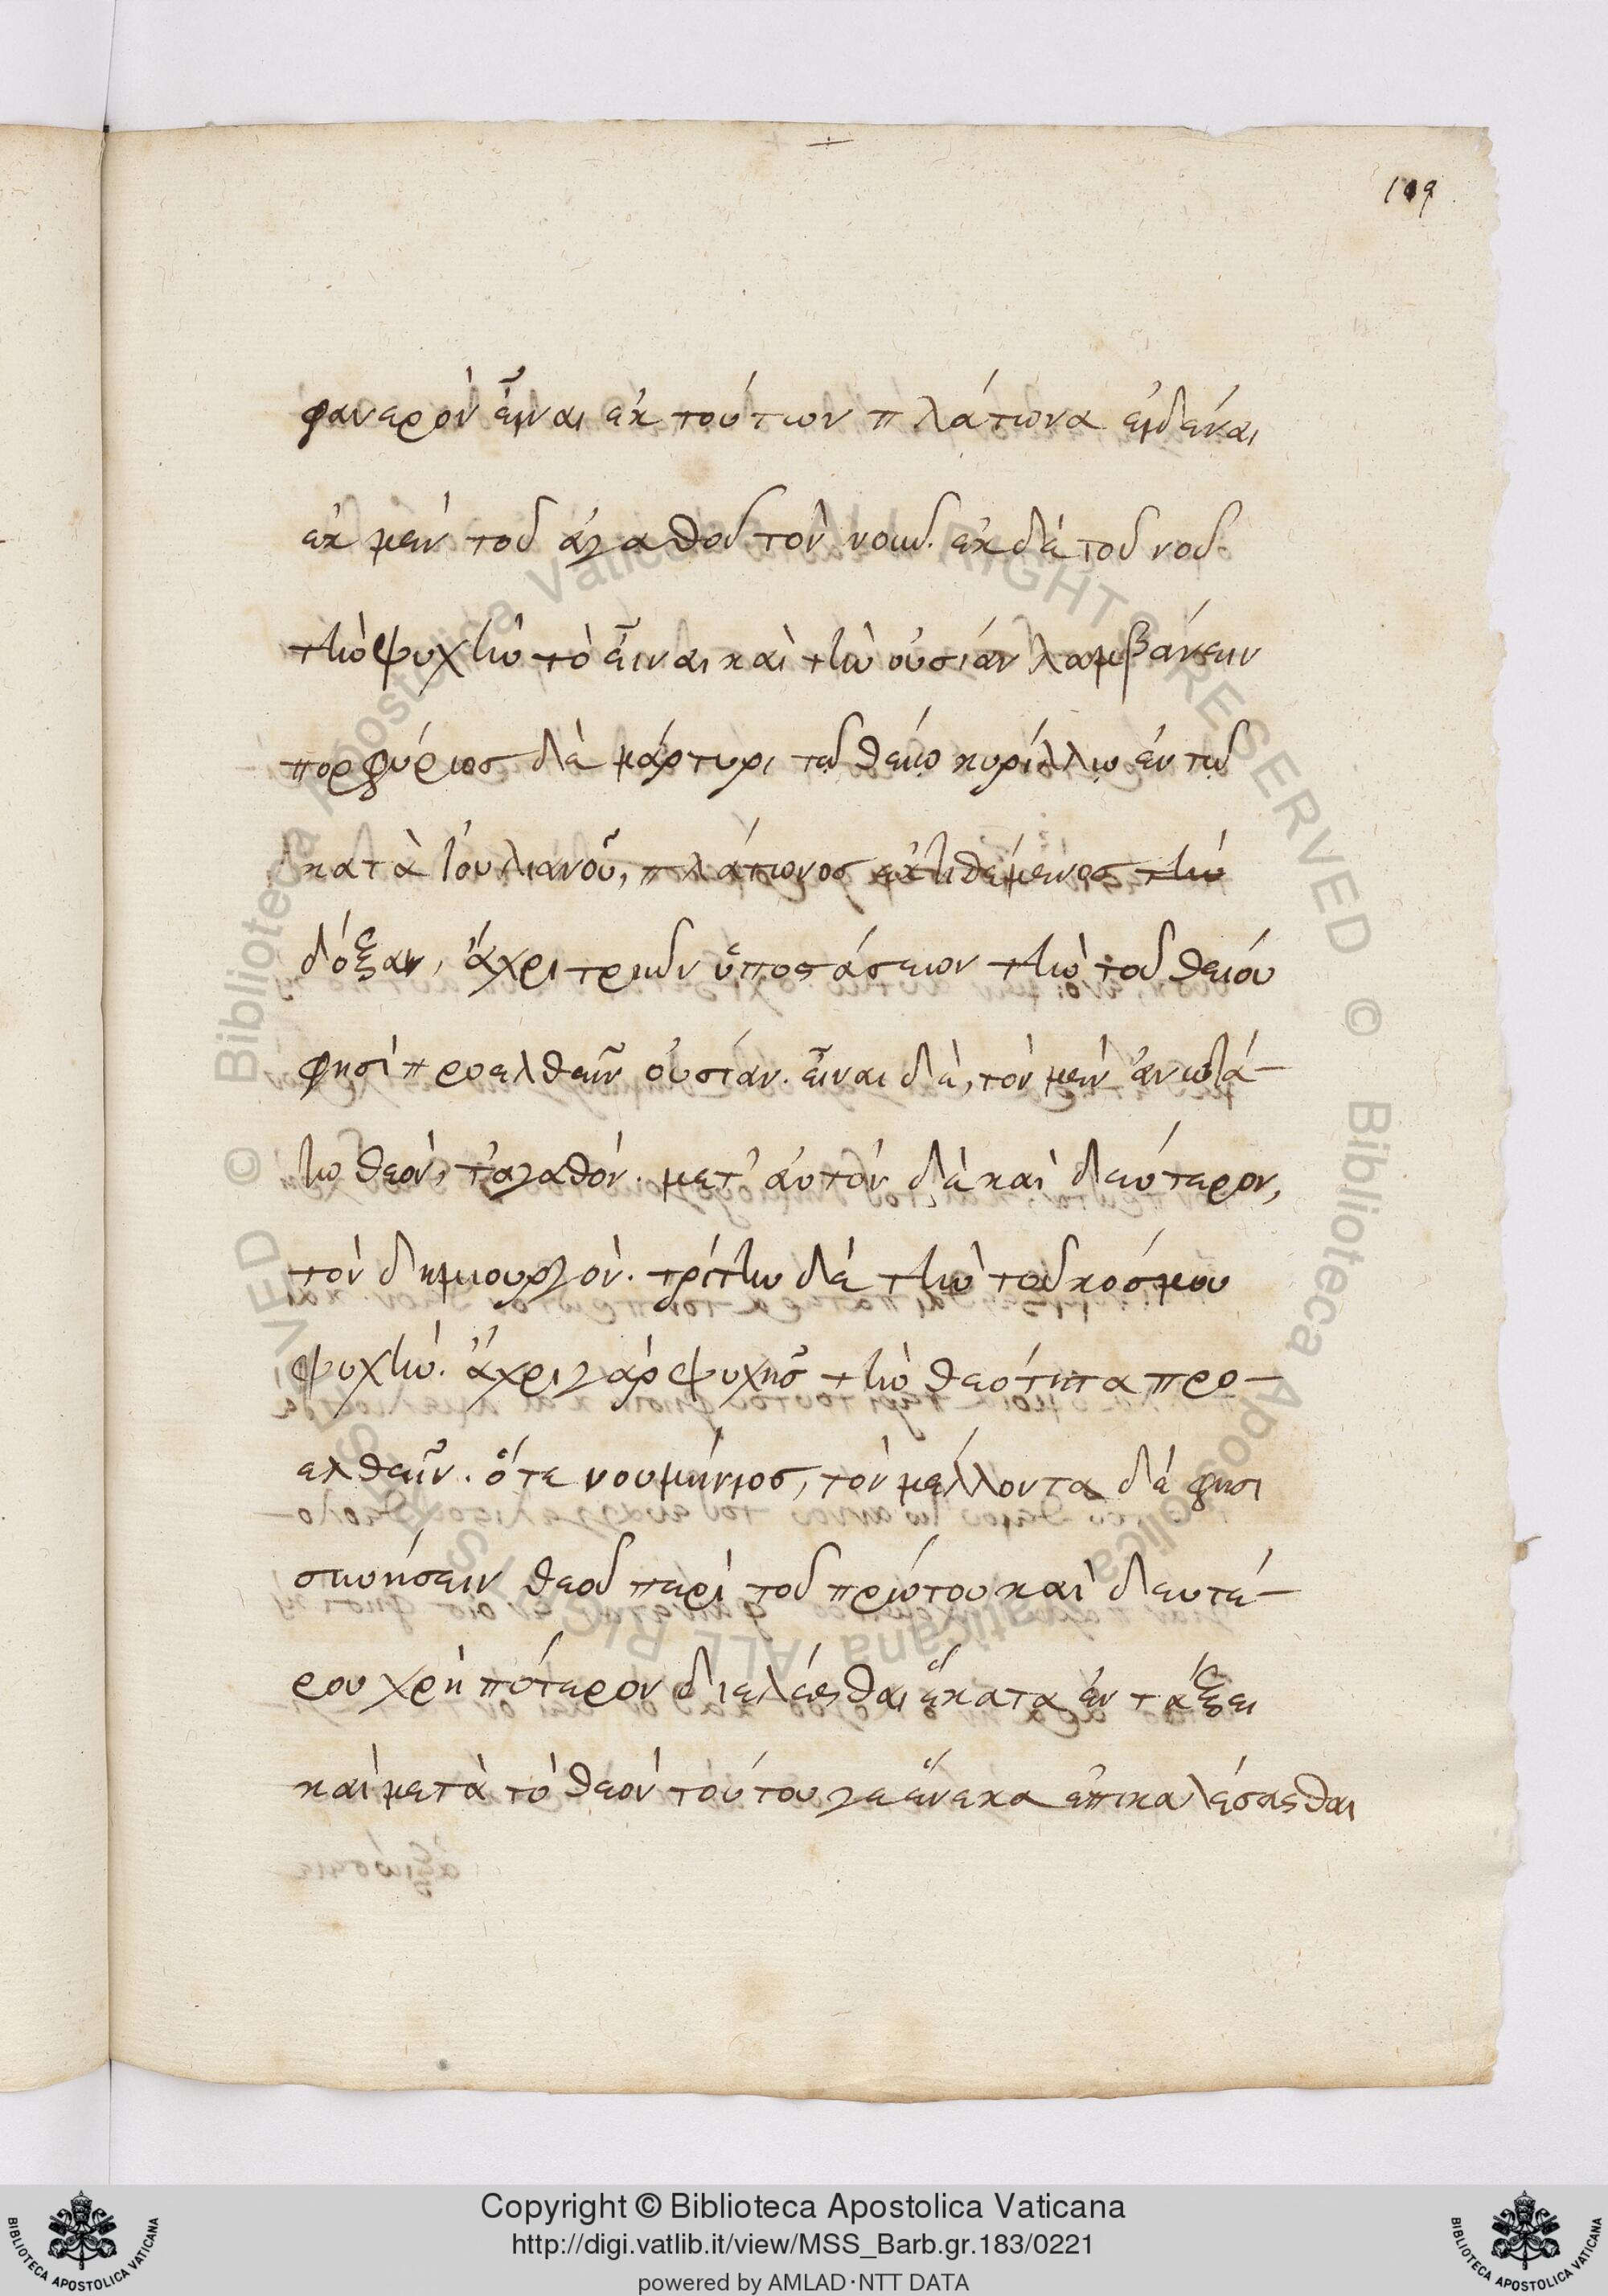 109
φανερὸν εἶναι ἐκ τούτων πλάτωνα εἰδέναι
ἐκ μὲν τοῦ ἀγαθοῦ τὸν νοῦν. ἐκ δὲ τοῦ νοῦ
τὴν ψυχὴν τὸ εἶναι καὶ τὴν οὐσίαν λαμβάνειν
πορφύριος δὲ μάρτυρι τῷ θείῳ κυρίλλῳ ἐν τῷ
κατὰ ἰουλιανοῦ, πλάτωνος ἐκτιθέμενος τὴν
δόξαν, ἄχρι τριῶν ὑποστάσεων τὴν τοῦ θείου
φησὶ προελθεῖν οὐσίαν. εἶναι δὲ, τὸν μὲν ἀνωτά-
τω θεὸν, τἀγαθόν. μετ' αὐτὸν δὲ καὶ δεύτερον,
τὸν δημιουργὸν. τρίτην δὲ τὴν τοῦ κόσμου
ψυχὴν. ἄχρι γὰρ ψυχῆς τὴν θεότητα προ-
ελθεῖν. ὅτε νουμήνιος, τὸν μέλλοντα δέ φησι
συνήσειν θεοῦ περὶ τοῦ πρώτου καὶ δευτέ-
ρου χρὴ πότερον διελέσθαι ἕκαστα ἐν τάξει
καὶ μετὰ τὸ θεὸν τούτου γε ἕνεκα ἐπικαλέσασθαι
Copyright © Biblioteca Apostolica Vaticana
http://digi.vatlib.it/view/MSS_Barb.gr.183/0221
powered by AMLAD·NTT DATA